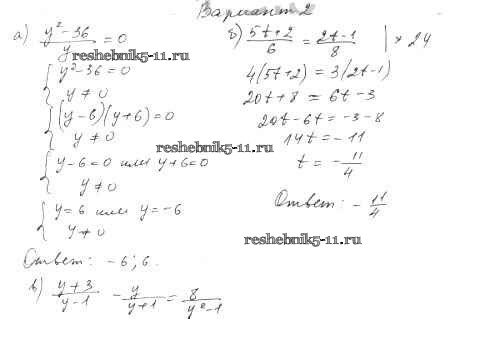 Вариант 2
а) (y²-36)/y = 0
{ y²-36=0
y≠0
{ (y-6)(y+6)=0
y≠0
{ y-6=0 или y+6=0
y≠0
{ y=6 или y=-6
y≠0
Ответ: -6; 6.
б) (5t+2)/6 = (2t-1)/8 | × 24
4(5t+2)=3(2t-1)
20t+8=6t-3
20t-6t=-3-8
14t=-11
t=-11/4
Ответ: -11/4
в) (y+3)/(y-1) - y/(y+1) = 8/(y²-1)
reshebnik5-11.ru
reshebnik5-11.ru
reshebnik5-11.ru